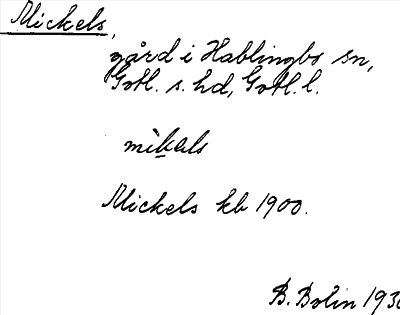 Mickels,
gård i Hablingbo sn,
Gotl. s. hd, Gotl. l.
mìkals
Mickels kb 1900.
B. Bolin 193